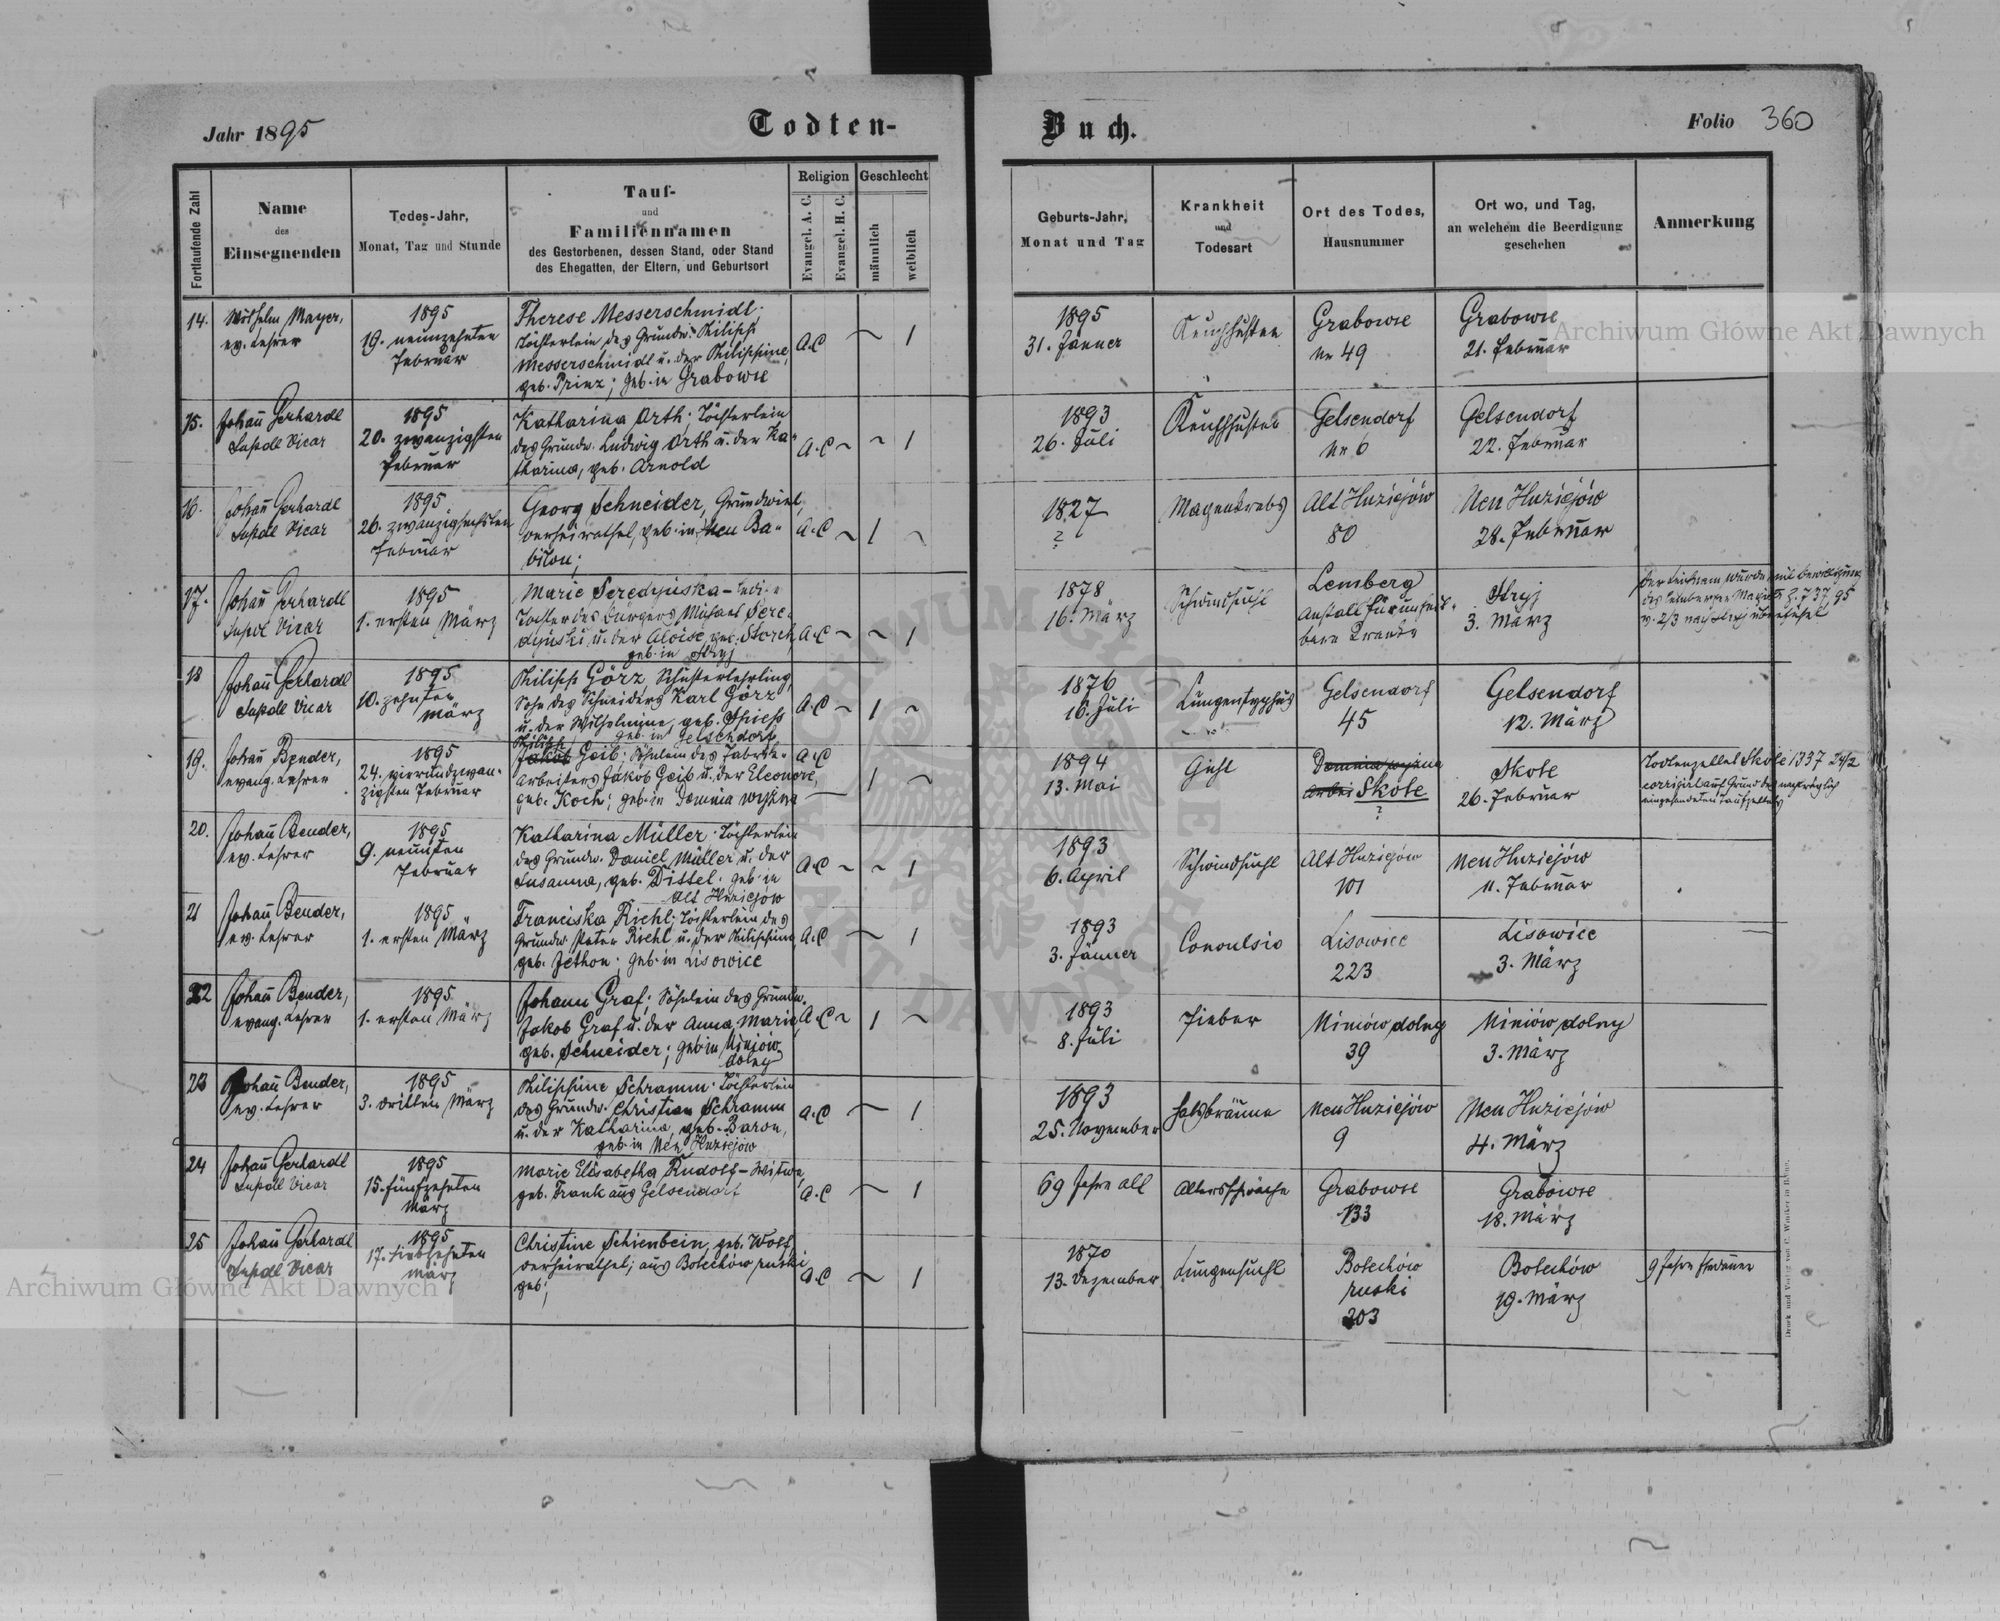 Jahr 1895
Todten-
Buch.
Folio 360
Fortlaufende Zahl
Name
des
Einsegnenden
Todes-Jahr,
Monat, Tag und Stunde
Tauf-
und
Familiennamen
des Gestorbenen, dessen Stand, oder Stand
des Ehegatten, der Eltern, und Geburtsort
Religion
Evangel. A. C.
Evangel. H. C.
Geschlecht
männlich
weiblich
Geburts-Jahr,
Monat und Tag
Krankheit
und
Todesart
Ort des Todes,
Hausnummer
Ort wo, und Tag,
an welchem die Beerdigung
geschehen
Anmerkung
14.
Wilhelm Mayer,
ev. Lehrer
1895
19. neunzehnten
Februar
Therese Messerschmidt;
Töchterlein des Grundw. Philipp
Messerschmidt u. der Philippine,
geb. Prinz; geb. in Grabowie
A.C
~ 1
1895
31. Jänner
Keuchhusten
Grabowie
Nr 49
Grabowie
21. Februar
15.
Johañ Gerhardt
Supdl Vicar
1895
20. zwanzigsten
Februar
Katharina Orth; Töchterlein
des Grundw. Ludwig Orth u. der Ka-
tharina, geb. Arnold
A.C ~ ~ 1
1893
26. Juli
Keuchhusten
Gelsendorf
Nr 6
Gelsendorf
22. Februar
16.
Johañ Gerhardt
Supdl Vicar
1895
26. zwanzigsechsten
Februar
Georg Schneider, Grundwirt,
verheirathet, geb. in Neu Ba-
bilon;
A.C ~ 1 ~
1827
?
Magenkrebs
Alt Huziejów
80
Neu Huziejów
28. Februar
17.
Johañ Gerhardt
Supdl Vicar
1895
1. ersten März
Marie Seredyńska - ledige
Tochter des Bürgers Michael Sere-
dyński u. der Aloise, geb. Storch,
geb. in Stryj
A.C ~ ~ 1
1878
16. März
Schwindsucht
Lemberg
Anstalt für unheil-
bare Kranke
Stryj
3. März
Der Leichnam wurde mit Bewilligung
des Lemberger Magistr. Z. 737/95
v. 2/3 nach Stryj überführt
18
Johañ Gerhardt
Supdl Vicar
1895
10. zehnten
März
Philipp Görz, Schusterlehrling,
Sohn des Schneiders Karl Görz
u. der Wilhelmine, geb. Spiess
geb. in Gelsendorf
A.C ~ 1 ~
1876
16. Juli
Lungentyphus
Gelsendorf
45
Gelsendorf
12. März
19.
Johañ Bender,
evang. Lehrer
1895
24. vierundzwan-
zigsten Februar
Philipp
Jakob Geib; Söhnlein des Fabriks-
arbeiters Jakob Geib u. der Eleonore,
geb. Koch; geb. in Demnia wyżna
A.C
1 ~
1894
13. Mai
Gicht
Demnia wyżna
Skole
?
Skole
26. Februar
Todtenzettel Skole 1337 24/2
corrigirt auf Grund des nachträglich
eingesendeten Taufzettels
20.
Johañ Bender,
ev. Lehrer
1895
9. neunten
Februar
Katharina Müller; Töchterlein
des Grundw. Daniel Müller u. der
Susanna, geb. Dittel; geb. in
Alt Huziejów
A.C ~ ~ 1
1893
6. April
Schwindsucht
Alt Huziejów
101
Neu Huziejów
11. Februar
21
Johañ Bender,
ev. Lehrer
1895
1. ersten März
Franciska Richl; Töchterlein des
Grundw. Peter Richl u. der Philippine,
geb. Jethon; geb. in Lisowice
A.C ~ 1
1893
3. Jänner
Convulsio
Lisowice
223
Lisowice
3. März
22
Johañ Bender,
evang. Lehrer
1895
1. ersten März
Johann Graf; Söhnlein des Grundw.
Jakob Graf u. der Anna Marie,
geb. Schneider; geb. in Niniów
dolny
A.C ~ 1 ~
1893
8. Juli
Fieber
Niniów dolny
39
Niniów dolny
3. März
23
Johañ Bender,
ev. Lehrer
1895
3. dritten März
Philippine Schramm; Töchterlein
des Grundw. Christian Schramm
u. der Katharina, geb. Baron,
geb. in Neu Huziejów
A.C ~ 1
1893
25. November
Halsbräune
Neu Huziejów
9
Neu Huziejów
4. März
24
Johañ Gerhardt
Supdl Vicar
1895
15. fünfzehnten
März
Marie Elisabetha Rudolf - Witwe,
geb. Frank aus Gelsendorf
A.C ~ 1
69 Jahre alt
Altersschwäche
Grabowie
133
Grabowie
18. März
25
Johañ Gerhardt
Supdl Vicar
1895
17. siebzehnten
März
Christine Schienbein, geb. Wolf,
verheirathet; aus Bolechów ruski
geb;
A.C ~ 1
1870
13. Dezember
Lungensucht
Bolechów
ruski
203
Bolechów
19. März
Druck und Verlag von C. Winiker in Brünn.
Archiwum Główne Akt Dawnych
Archiwum Główne Akt Dawnych
ARCHIWUM GŁÓWNE
AKT DAWNYCH